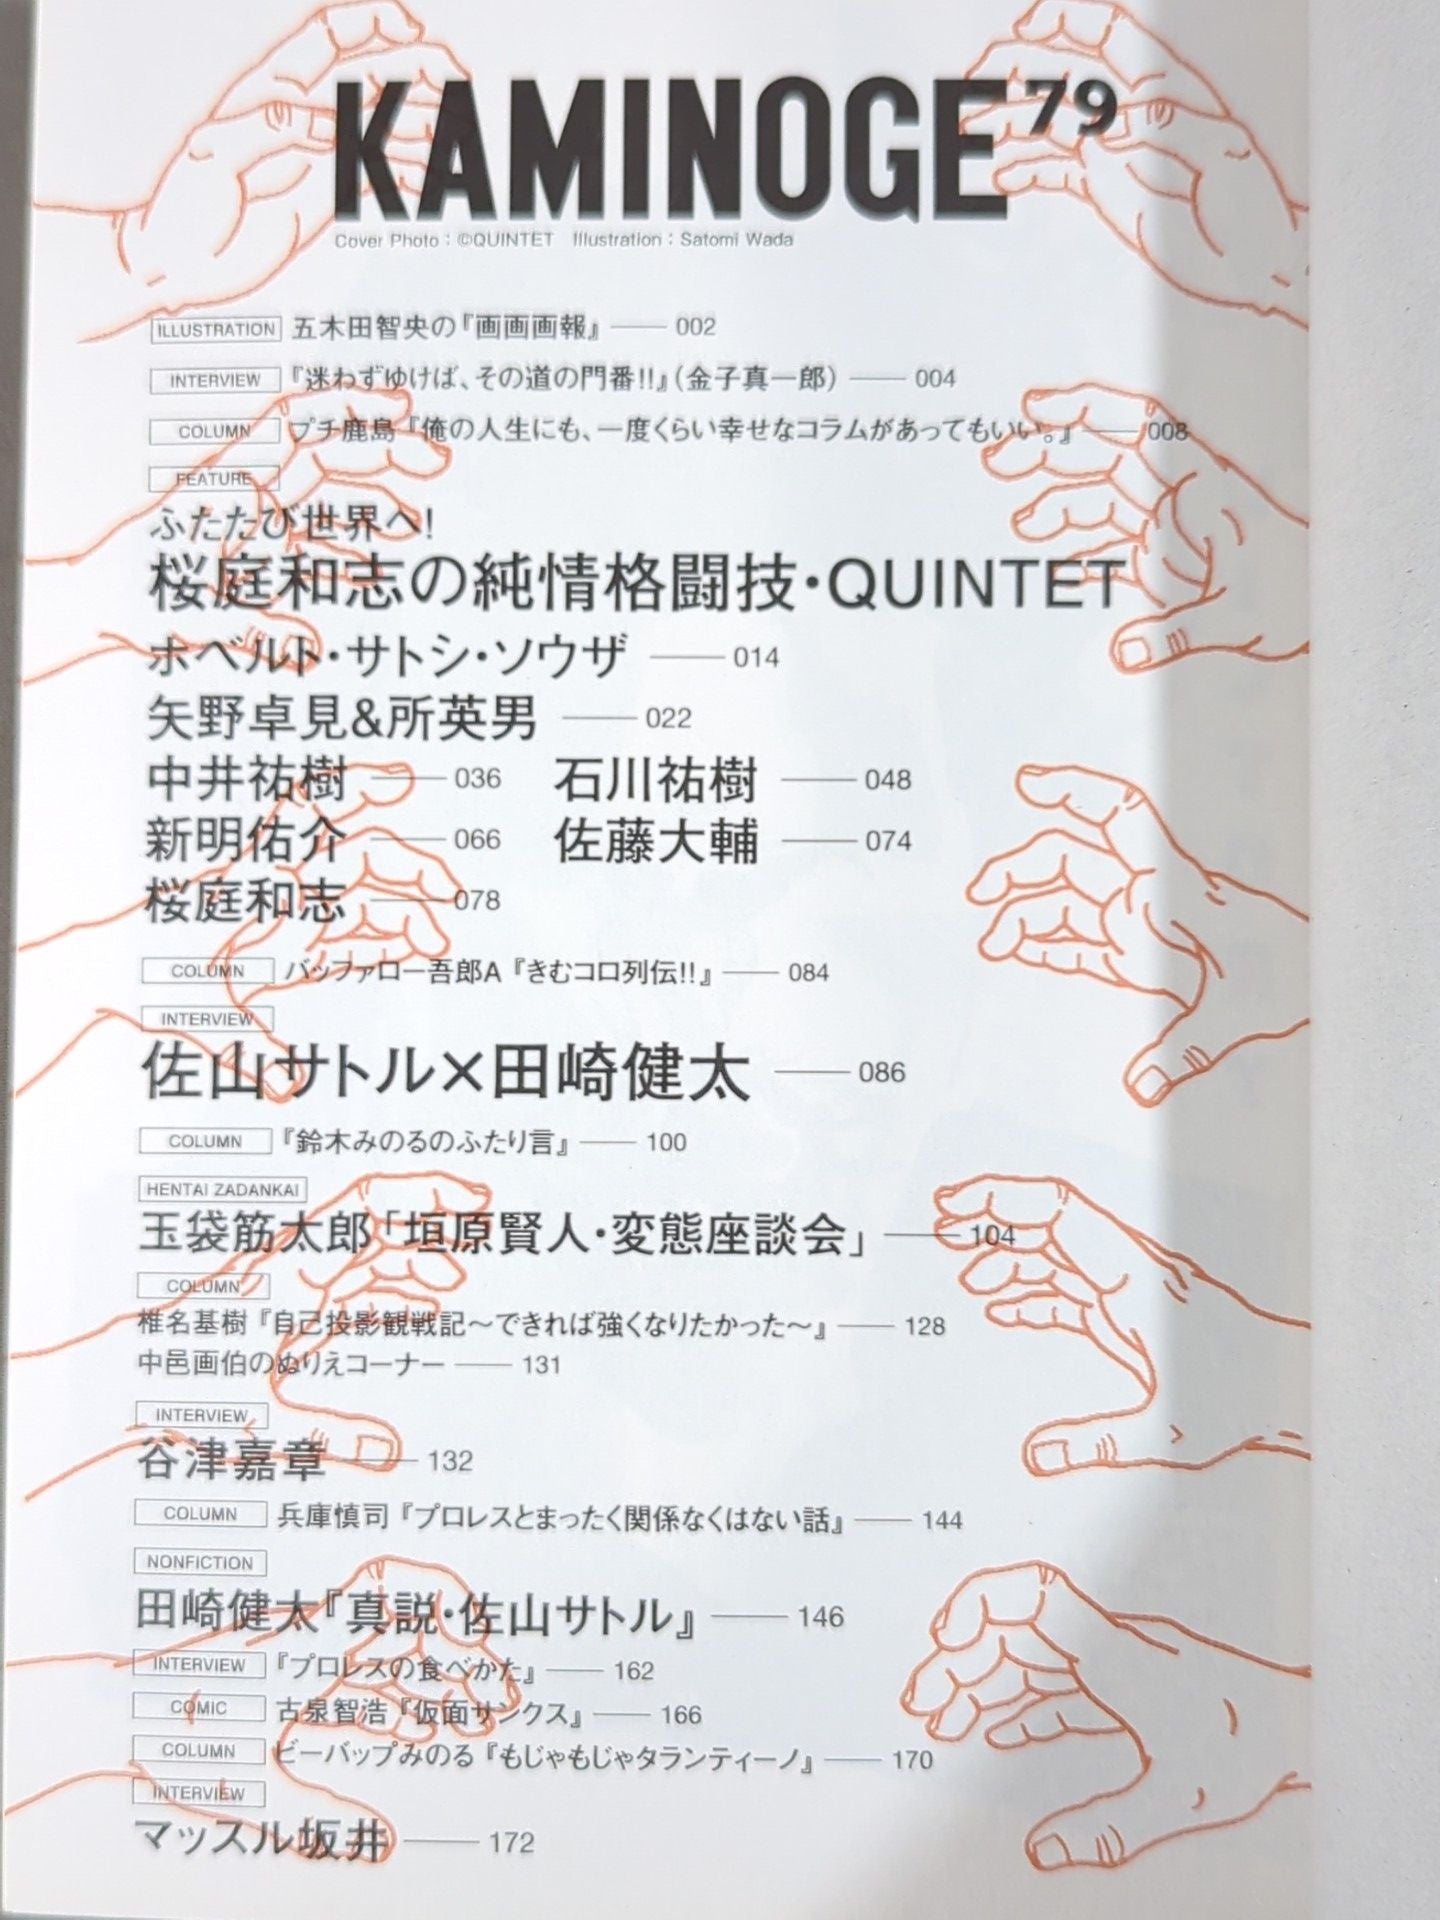 KAMINOGE 79
Cover Photo：©QUINTET　Illustration：Satomi Wada
ILLUSTRATION 五木田智央の『画画画報』 —— 002
INTERVIEW 『迷わずゆけば、その道の門番!!』（金子真一郎） —— 004
COLUMN プチ鹿島『俺の人生にも、一度くらい幸せなコラムがあってもいい。』 —— 008
FEATURE
ふたたび世界へ!
桜庭和志の純情格闘技・QUINTET
ホベルト・サトシ・ソウザ —— 014
矢野卓見&所英男 —— 022
中井祐樹 —— 036　石川祐樹 —— 048
新明佑介 —— 066　佐藤大輔 —— 074
桜庭和志 —— 078
COLUMN バッファロー吾郎A『きむコロ列伝!!』 —— 084
INTERVIEW
佐山サトル×田崎健太 —— 086
COLUMN 『鈴木みのるのふたり言』 —— 100
HENTAI ZADANKAI
玉袋筋太郎「垣原賢人・変態座談会」 —— 104
COLUMN
椎名基樹『自己投影観戦記〜できれば強くなりたかった〜』 —— 128
中邑画伯のぬりえコーナー —— 131
INTERVIEW
谷津嘉章 —— 132
COLUMN 兵庫慎司『プロレスとまったく関係なくはない話』 —— 144
NONFICTION
田崎健太『真説・佐山サトル』 —— 146
INTERVIEW 『プロレスの食べかた』 —— 162
COMIC 古泉智浩『仮面サンクス』 —— 166
COLUMN ビーバップみのる『もじゃもじゃタランティーノ』 —— 170
INTERVIEW
マッスル坂井 —— 172